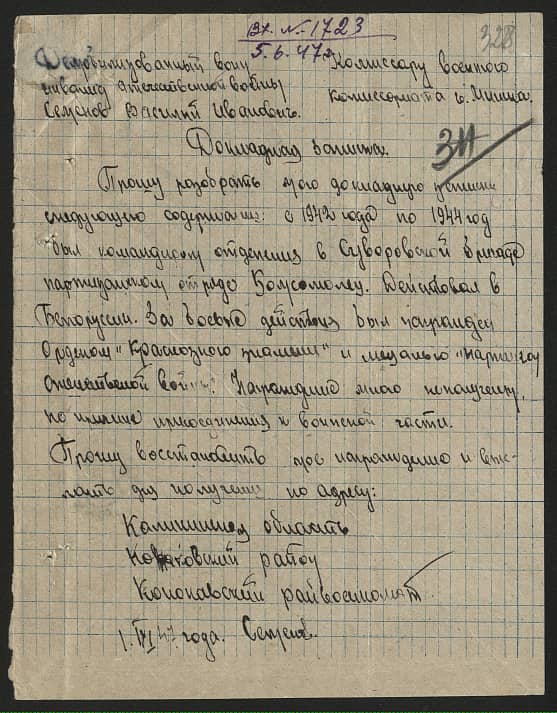 Вх. № 1723
5.6.47г.
328
Демобилизованный воин
инвалид отечественной войны
Семёнов Василий Иванович.
Комиссару военного
комиссариата г. Минска.
Докладная записка.
311
Прошу разобрать мою докладную записку
следующего содержания: с 1942 года по 1944 год
был командиром отделения в Суворовской бригаде
партизанском отряде Комсомолец. Действовал в
Белоруссии. За боевые действия был награжден
Орденом "Краснозного знамени" и медалью "Партизану
отечественной войны". Награждение мною неполучену,
по причине присоединения к воинской части.
Прошу восстановить мое награждение и
для получения по адресу:
Калининская область
район
райвоенкомат
1. VI 47 года. Семенов.